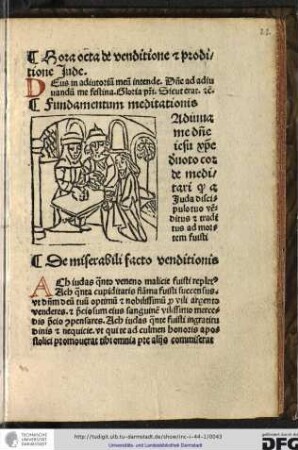 ¶ Hora octa de venditione ⁊ prodi
tione Jude.
DEus in adiutoriū meū intende. Dñe ad adiu
uandū me festina. Gloria pr̄i. Sicut erat. ⁊c̄.
¶ Fundamentum meditationis
Adiuua
me dñe
iesu xp̄e
deuoto cor
de medi
tari q̄ a
Juda disci
pulo tuo vē
ditus ⁊ tradi
tus ad mor
tem fuisti
¶ De miserabili facto venditionis
ACh iudas q̄nto veneno malicie fuisti replet⁹
Ach q̄nta cupiditatis flāma fuisti succensus.
vt dn̄m deū tuū optimū ⁊ nobilissimū ꝓ vili argento
venderes. ⁊ p̄ciosum eius sanguinē vilissimo merce⸗
dis p̄cio 9pensares. Ach iudas q̄nte fuisti ingratitu
dinis ⁊ nequicie. vt qui te ad culmen honoris apo⸗
stolici promouerat tibi omnia pre alijs commiserat
TECHNISCHE
UNIVERSITÄT
DARMSTADT
http://tudigit.ulb.tu-darmstadt.de/show/inc-i-44-1/0043
Universitäts- und Landesbibliothek Darmstadt
gefördert durch die
DFG